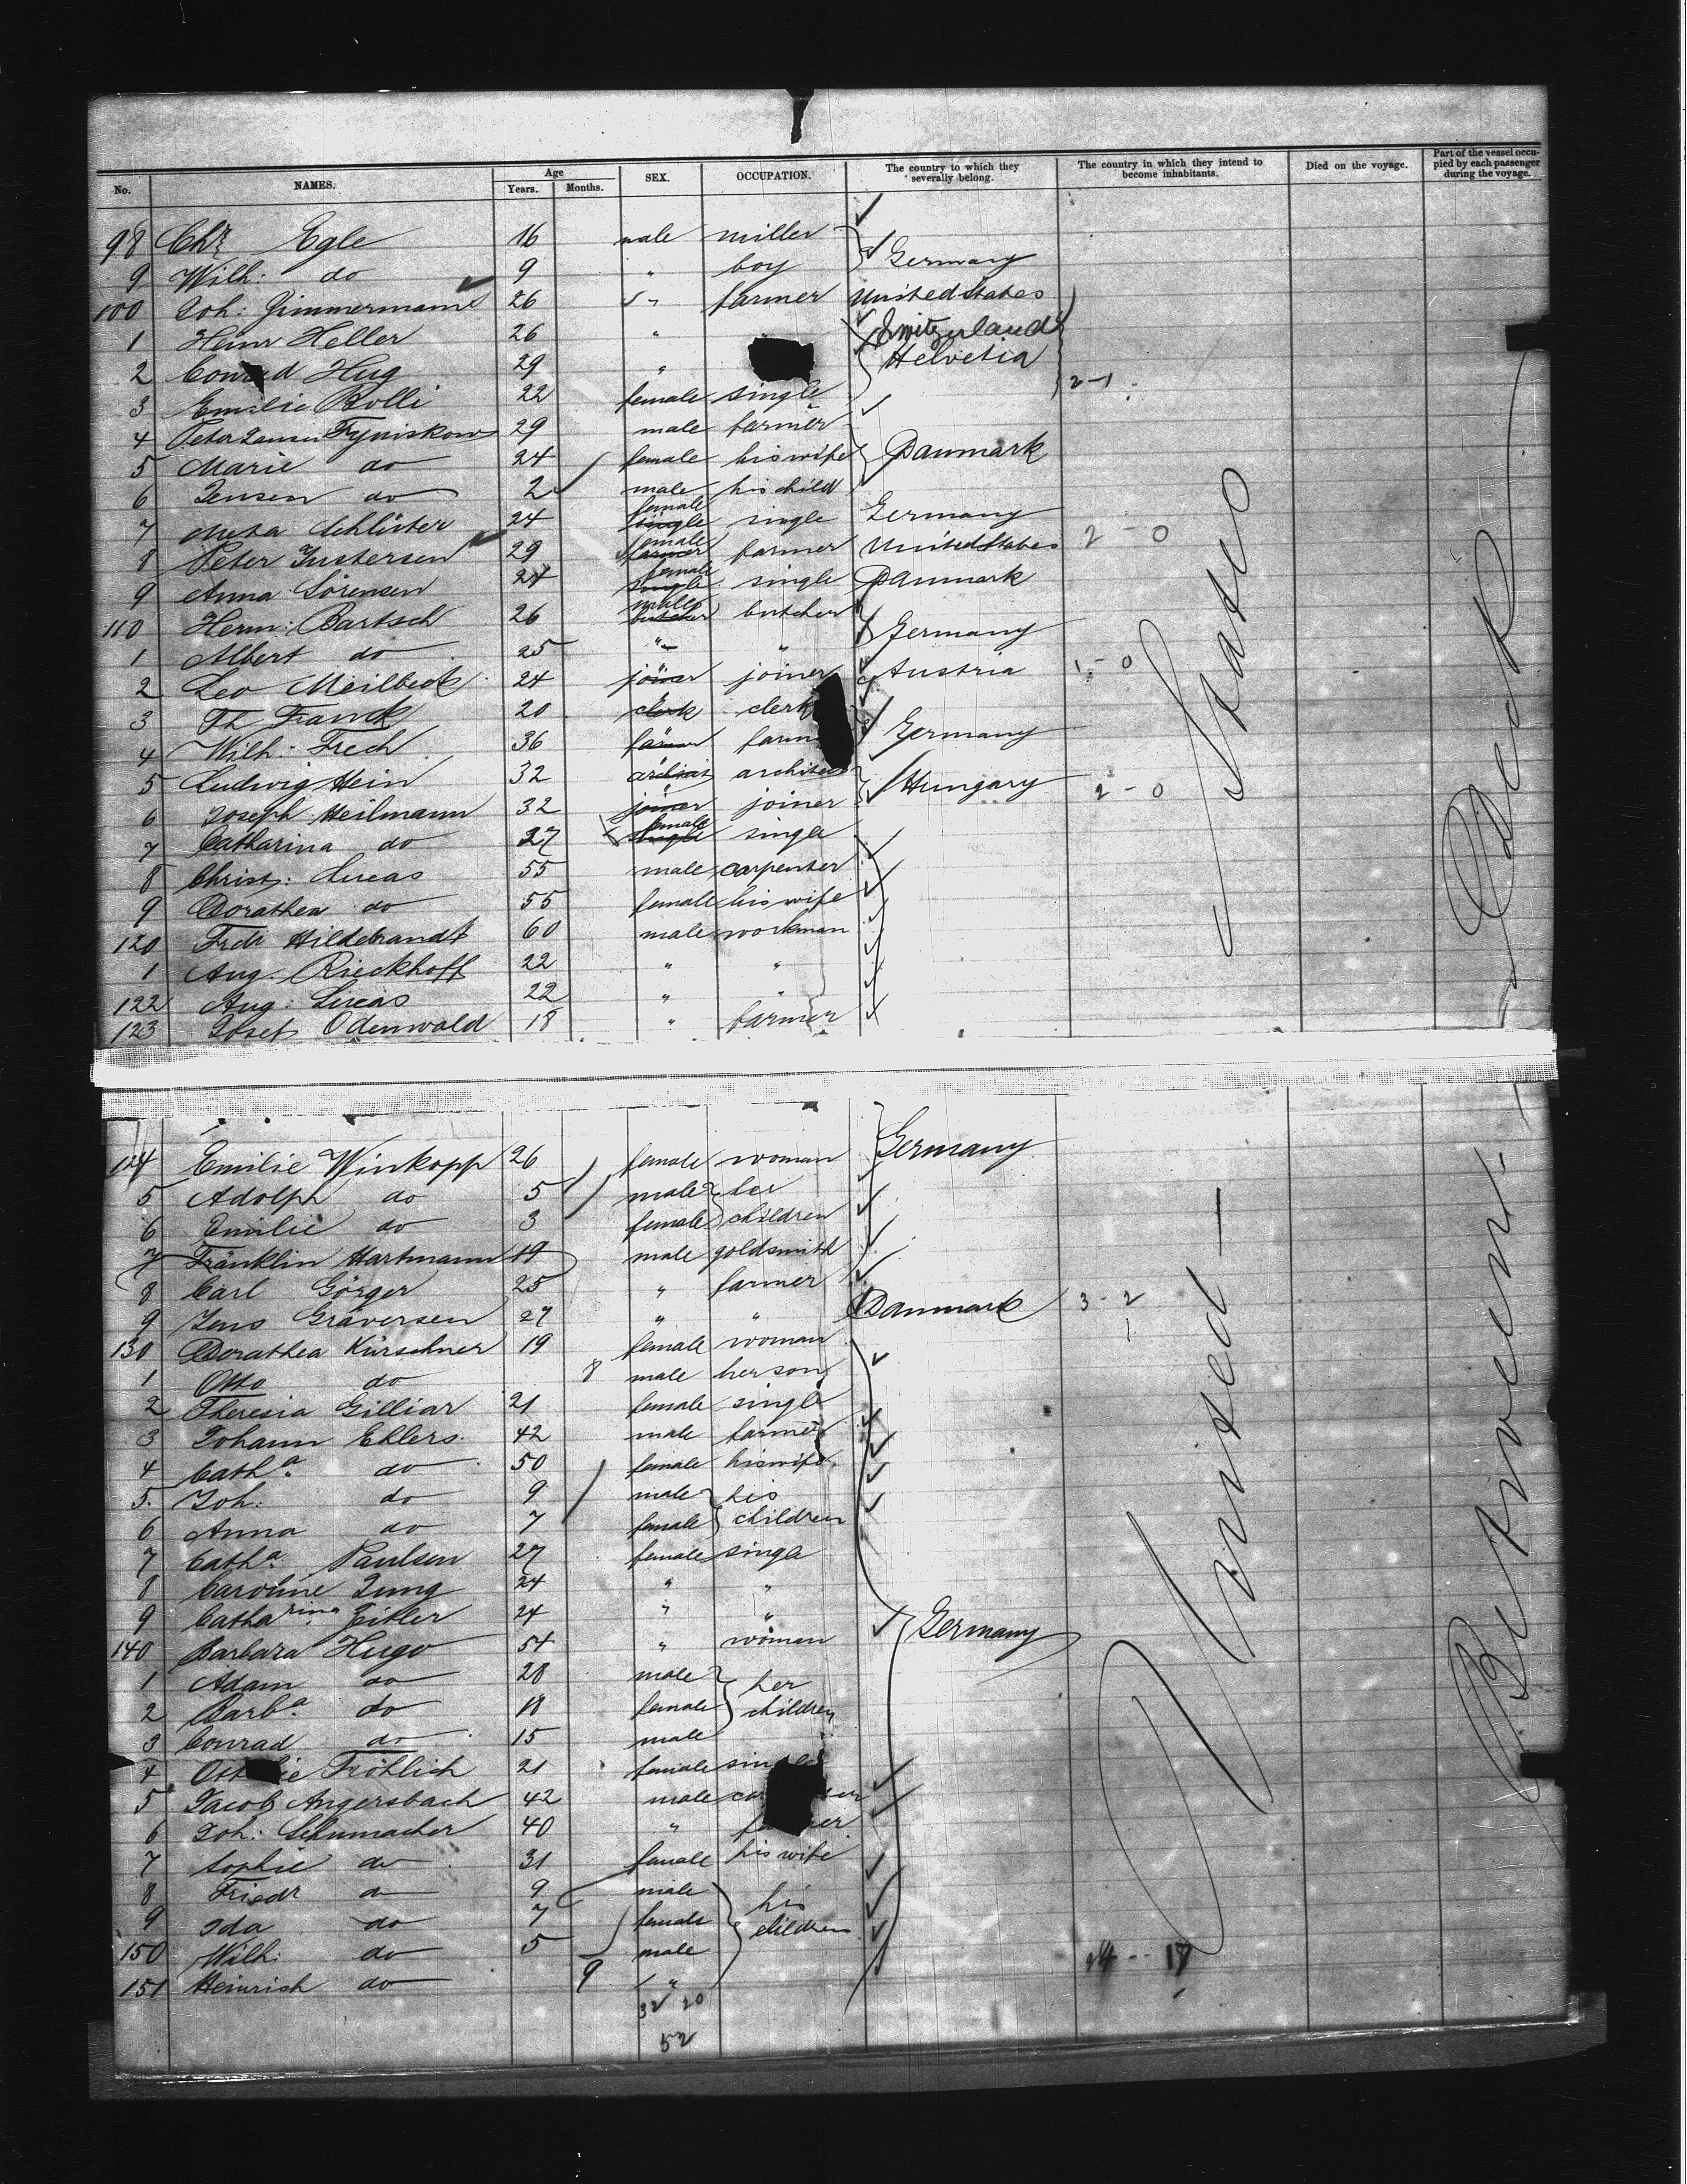 No. NAMES. Age Years. Months. SEX. OCCUPATION. The country to which they severally belong. The country in which they intend to become inhabitants. Died on the voyage. Part of the vessel occupied by each passenger during the voyage.
98 Chr Egle 16 male miller
9 Wilh: do 9 " boy Germany
100 Joh: Zimmermann 26 " farmer United States
1 Heinr Heller 26 " Switzerland
2 Con d Hug 29 " Helvetia
3 Emilie Bolli 22 female single 2-1
4 Peter Jensen Fyniskow 29 male farmer
5 Marie do 24 female his wife Danmark
6 Jensen do 2 male his child
7 Meta Schlüter 24 single female single Germany
8 Peter Justersen 29 farmer male farmer United States 2-0
9 Anna Sörensen 24 single female single Danmark
110 Herm: Bartsch 26 butcher male butcher
1 Albert do 25 " " Germany
2 Leo Meilbeck 24 joiner joiner Austria 1-0
3 Th Franck 20 clerk clerk
4 Wilh: Frech 36 farm Germany
5 Ludwig Hein 32 architec
6 Joseph Heilmann 32 joiner joiner Hungary 2-0
7 Catharina do 27 single female single
8 Christ: Lucas 55 male carpenter
9 Dorathea do 55 female his wife
120 Fredr Hildebrandt 60 male workman
1 Aug. Rieckhoff 22 " "
122 Aug: Lucas 22 " "
123 Josef Odenwald 18 " farmer
States
Deck
124 Emilie Winkopp 26 female woman Germany
5 Adolph do 5 male her
6 Emilie do 3 female children
7 Franklin Hartmann 19 male goldsmith
8 Carl Görger 25 " farmer
9 Jens Graversen 27 " " Danmark 3-2
130 Dorathea Kürschner 19 female woman 1
1 Otto do 8 male her son
2 Theresia Gilliar 21 female single
3 Johann Ehlers 42 male farmer
4 Catha do 50 female his wife
5 Joh: do 9 male his
6 Anna do 7 female children
7 Catha Paulsen 27 female single
8 Caroline Jung 24 " "
9 Catharina Zeitler 24 " "
140 Barbara Hugo 54 " woman Germany
1 Adam do 28 male her
2 Barba do 18 female children
3 Conrad do 15 male
4 Ott ie Fröhlich 21 female single
5 Jacob Angersbach 42 male car
6 Joh: Schumacher 40 " f er
7 Sophie do 31 female his wife
8 Friedr do 9 male his
9 Ida do 7 female children
150 Wilh: do 5 male
151 Heinrich do 9 "
14 - 17
32 20
52
United -
Between-